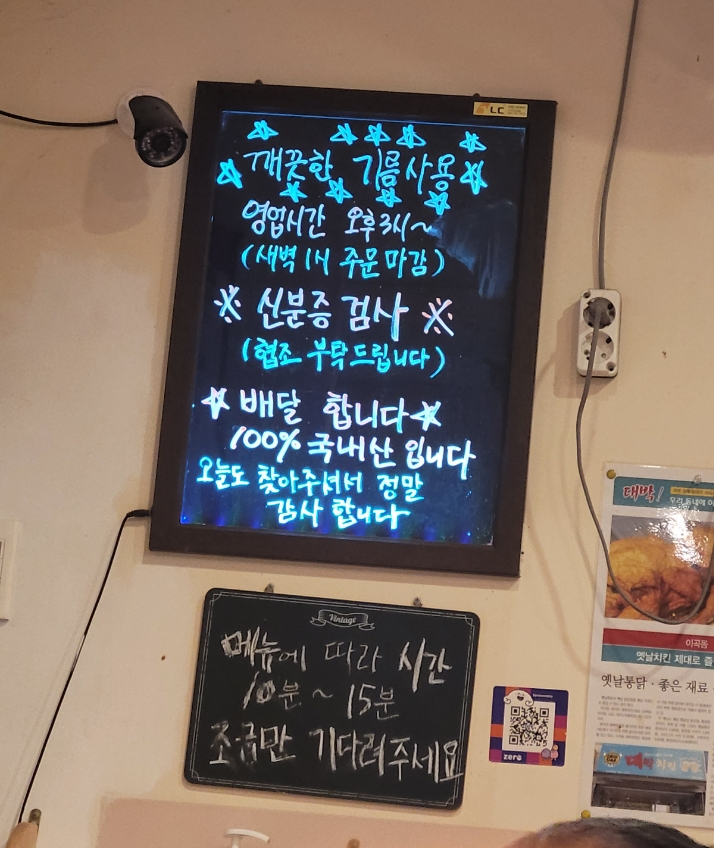 LC
깨끗한 기름사용
영업시간 오후3시~
(새벽 1시 주문마감)
※ 신분증 검사 ※
(협조 부탁드립니다)
배달 합니다
100% 국내산 입니다
오늘도 찾아주셔서 정말
감사 합니다
Vintage
메뉴에 따라 시간
10분 ~ 15분
조금만 기다려주세요
zero
대박!
우리 동네에
이곡동
옛날치킨 제대로
옛날통닭·좋은 재료